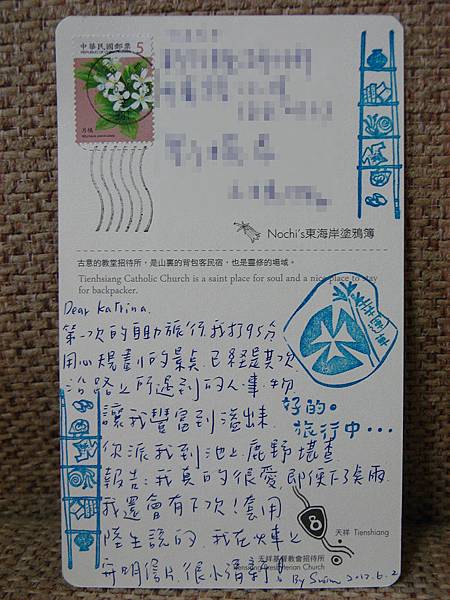 中華民國郵票 5
REPUBLIC OF CHINA
月橘
Nochi's東海岸塗鴉簿
古意的教堂招待所，是山裏的背包客民宿，也是靈修的場域。
Tienhsiang Catholic Church is a saint place for soul and a nice place to stay
for backpacker.
Dear Katrina.
第一次的自助旅行我打95分
用心規劃的景點已經是其次
沿路上所遇到的人事物
讓我豐富到溢出來
好的。
旅行中···
你派我到池上鹿野堪查
報告：我真的很愛，即使下了大雨
我還會有下次！套用
陸生說的 我在火車上
寫明信片很小清新！
8
天祥 Tienshiang
天祥基督教會招待所
Tienhsiang Presbyterian Church
2012.6.2